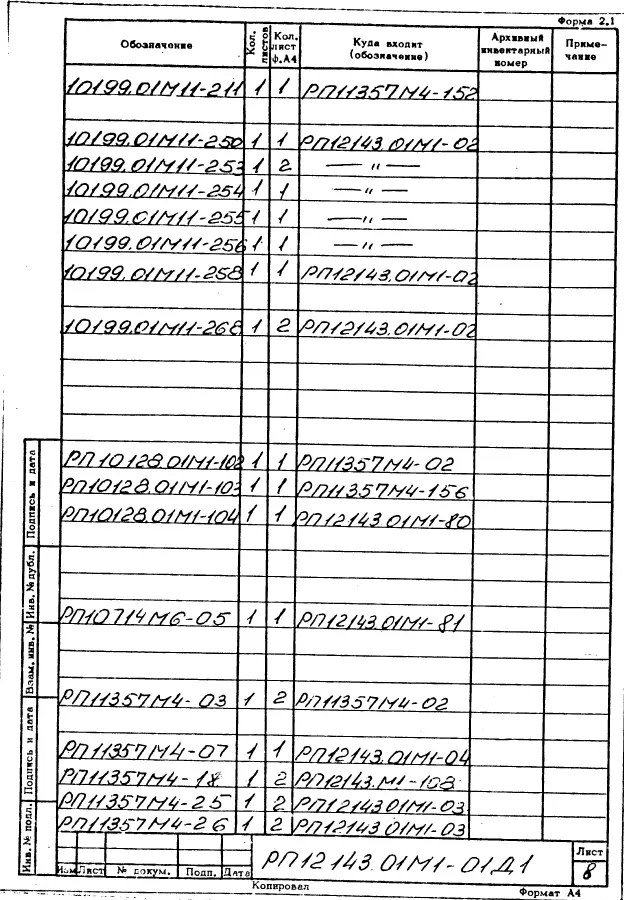 Форма 2.1
Обозначение Кол. листов Кол. лист ф.А4 Куда входит (обозначение) Архивный инвентарный номер Примечание
10199.01М11-211 1 1 РП11357М4-152
10199.01М11-250 1 1 РП12143.01М1-02
10199.01М11-253 1 2 — " —
10199.01М11-254 1 1 — " —
10199.01М11-255 1 1 — " —
10199.01М11-256 1 1 — " —
10199.01М11-258 1 1 РП12143.01М1-02
10199.01М11-268 1 2 РП12143.01М1-02
РП10128.01М1-102 1 1 РП11357М4-02
РП10128.01М1-103 1 1 РП11357М4-156
РП10128.01М1-104 1 1 РП12143.01М1-80
РП10714М6-05 1 1 РП12143.01М1-81
РП11357М4-03 1 2 РП11357М4-02
РП11357М4-07 1 1 РП12143.01М1-04
РП11357М4-18 1 2 РП12143.М1-108
РП11357М4-25 1 2 РП12143.01М1-03
РП11357М4-26 1 2 РП12143.01М1-03
Подпись и дата
Инв. № дубл.
Взам. инв. №
Подпись и дата
Инв. № подл.
Изм Лист № докум. Подп. Дата
РП12143.01М1-01Д1
Лист
8
Копировал
Формат А4